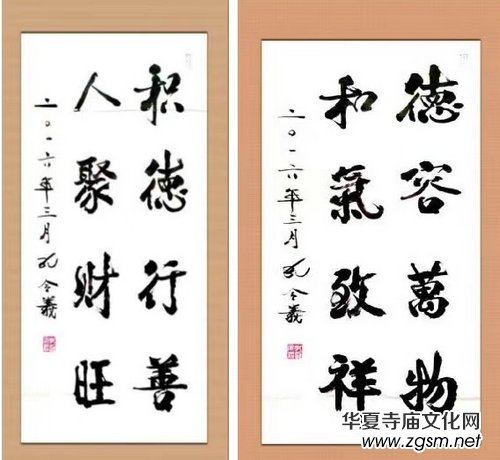 积德行善
人聚财旺
二〇一六年三月孔令義
德容萬物
和氣致祥
二〇一六年三月孔令義
华夏寺庙文化网
www.zgsm.net